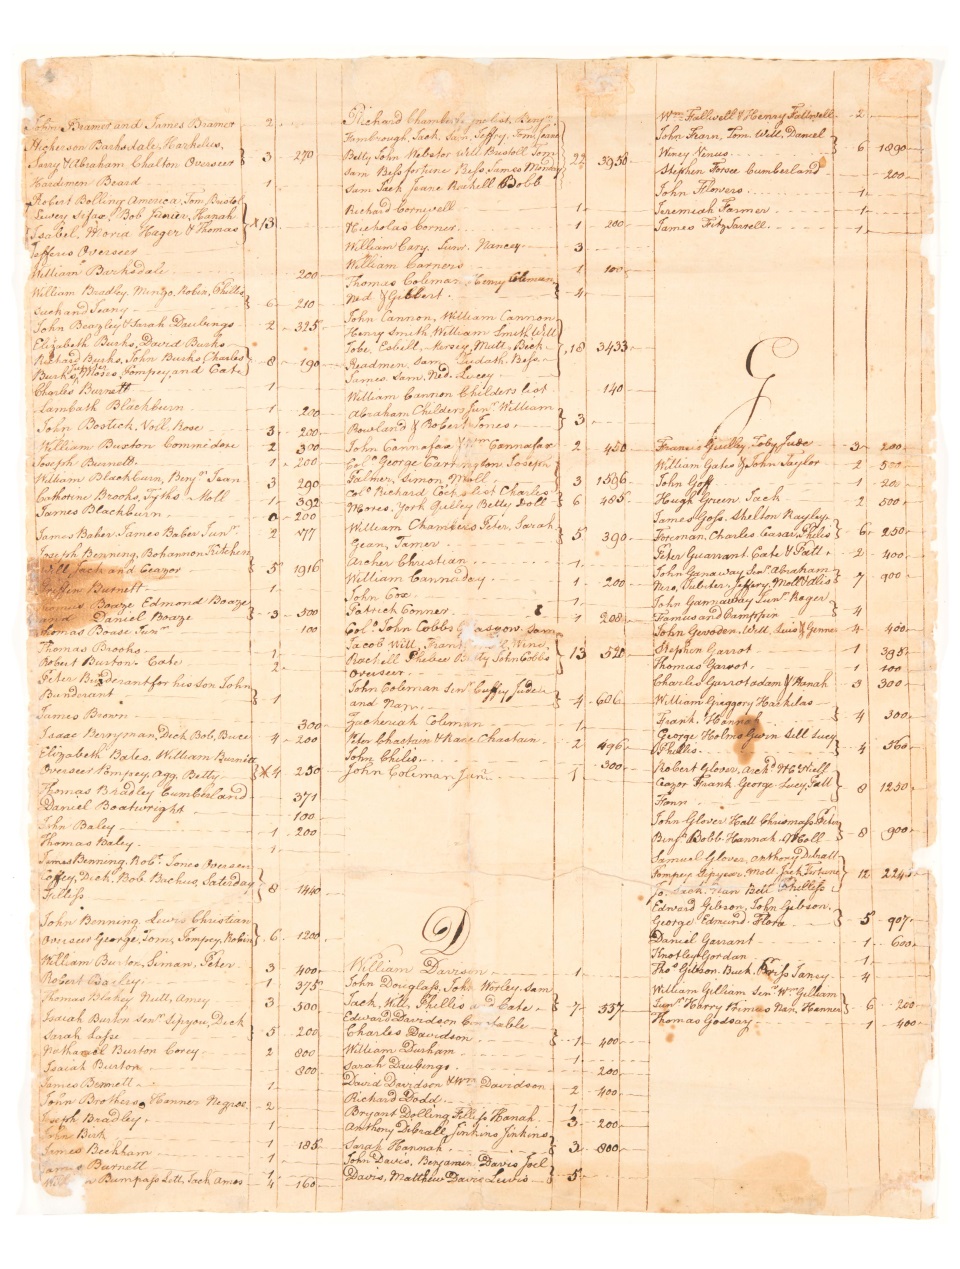 John Bramer and James Bramer 2
Hickerson Barksdale, Harkelus,
Sary & Abraham Chalton Overseer } 3 - 270
Hardimen Beard 1
Robert Bolling America, Tom Bustol
Lucey Syfax, Bob Junier, Hanah
Isabel, Moria Hager & Thomas } X 13
Jefferis Overseer
William Barksdale 200
William Bradley, Mingo, Robin, Chillis
such and Jeany } 6 - 210
John Beazley & Sarah Daubings 2 - 325
Elizabeth Burks, David Burks
Richard Burks, John Burks Charles
Burks, Moses, Pompey, and Cate } 8 - 190
Charles Burnett 1
Lambath Blackburn 1 - 200
John Bostick, Voll. Rose 3 - 200
William Buxton Comneden 2 - 300
Joseph Burnett 1 - 200
William Blackburn, Benjn Jean 3 290
Catherine Brooks, Tyths Moll 1 - 392
James Blackburn 0 - 200
James Baber James Baber Junr 2 - 577
Joseph Benning, Bohannon Kitchen
Will Jack and Ceazor } 5 1916
Griffin Burnett 1
Thomas Boaze Edmond Boaze
and Daniel Boaze } 3 - 500
Thomas Boase Junr 100
Thomas Brooks 1
Robert Burton. Cate 2
Peter Bunderant for his Son John
Bundurant } 1
James Brown 300
Isaac Berryman, Dick Bob, Buce 4 - 200
Elizabeth Bates. William Burnett
Overseer Pompey, Agg. Betty } X 4 250
Thomas Bradley Cumberland 371
Daniel Boatwright 100
John Baley 1 - 200
Thomas Baley 1
James Benning. Robt Jones Overseer
Coffey, Dick, Bob, Bachus, Saturday
Filliss } 8 1440
John Benning, Lewis Christian
Overseer George, Tom, Pompey, Robin } 6 1200
William Burton, Siman, Peter 3 400
Robert Barley 1 375
Thomas Blakey Nutt, Amey 3 500
Isaiah Burton Senr Sipyou, Dick
Sarah Lasse } 5 200
Nathaniel Burton Corey 2 800
Isaiah Burton 800
James Bennett 1
John Brothers, Honner Negroe 2
Joseph Bradley 1
John Birk 1 185
James Beckham 1
James Burnett 1
Bumpass Lett, Jack Amos 4 160
Richard Chambers list, Benj.
Hambrough, Jack, Sam, Joffey, Tom, Jeane
Betty John Webster Will Bustoll Tom
Sam Bess fortune Bess, James Monday
Sam Jack Jeane Rachell Bobb } 22 3950
Richard Cornwell 1
Nicholas Corner 1 200
William Cary, Junr. Nancey 3
William Carners 1 100
Thomas Coleman, Henry Coleman
Ned & Gilbert } 4
John Cannon, William Cannon
Henry Smith William Smith Will
Tobe, Esbell, Kersey, Mutt, Beck
Readmen Sam Judath, Bess
James, Sam, Ned. Lucey } 18 3433
William Cannon Childers list 140
Abraham Childers Junr William
Rowland & Robert Jones } 3
John Cannafax & Wm Cannafax 2 450
Colo George Carrington Joseph
Palmer, Simon, Moll } 3 1596
Colo Richard Cocks list Charles
Mores, York Gulley Betty Doll 6 485
William Chambers Peter, Sarah
Jean, Tamer } 5 390
Archer Christian 1
William Cannaday 1 - 200
John Cox 1
Patrick Conner 1 208
Colo John Cobbs Glasgow, Sam
Jacob Will, Frank Wine,
Rachell Phebee Betty John Cobbs
Overseer } 13 520
John Coleman Senr Cuffey Juder
and Nan } 4 606
Zacheriah Coleman 1
Peter Chastain & Race Chastain 2 496
John Chilis 300
John Coleman Junr 1
D
William Davison 1
John Douglass, John Worley, Sam
Jack, Will, Phillis and Cate } 7 337
Edward Davidson Constable
Charles Davidson 1 400
William Durham 1
Sarah Daubings 200
David Davidson & Wm Davidson 2 400
Richard Dodd 1
Bryant Dolling Filliss Hanah 3 200
Anthony Dibrall, Jinkins Jinkins
Sarah Hannah } 3 800
John Davis, Benjamin Davis Joel
Davis, Matthew Davis Lewis } 5
Wm Fallwell & Henry Fallwell 2
John Fearn, Tom, Will, Daniel
Winey Venus } 6 1890
Stephen Forsee Cumberland 200
John Flowers 1
Jeremiah Farmer 1
James Fitz Jarrell 1
G
France Guilley Toby Jube 3 200
William Gates & John Taylor 2 500
John Goff 1 200
Hugh Green, Jack 2 500
James Goss, Shelton Rayley,
Foreman, Charles Ceasar Philis } 6 250
Peter Guarrant Cate & Patt 2 400
John Ganaway Senr Abraham
Nero, Jubiter, Jeffery, Moll & Alis } 7 900
John Gannaway Junr Roger
Famus and Pampkin } 4
John Gevoden, Will, Suis & Genney 4 400
Stephen Garrot 1 398
Thomas Garrot 1 100
Charles Garrot Adam & Hanah 3 300
William Griggory Harkilas
Frank, Hannah } 4 300
George Holms Gwin Sill Lucy
Phillis } 4 560
Robert Glover, Archd McCneill
Ceazor Frank George Lucy Tall
Hann } 8 1250
John Glover Hall Chrismass Peter
Benjn Bobb Hannah, & Moll } 8 900
Samuel Glover, Anthony Dibrall
Pompey Sipyear, Moll, Jack, Fortune
Jo. Jack, Nan Bell Philliss } 12 2245
Edward Gibson, John Gibson.
George Edmund Flora } 5 907
Daniel Garrant 1 600
Knotley Gordan 1
Thos Gibson. Buck, Briss Jancy 4
William Gilliam Senr Wm Gilliam
Junr Harry Primus Nan, Hanner } 6 200
Thomas Godsay 1 400